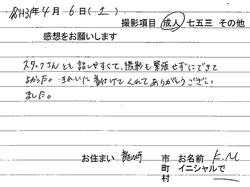 R3年4月6日(土)
撮影項目 成人 七五三 その他
感想をお願いします
スタッフさんとも話しやすくて、撮影も緊張せずにできて
よかった。きれいに着付けてくれてありがとうござい
ました。
お住まい 龍ヶ崎 市 お名前 K.M
町 イニシャルで
村